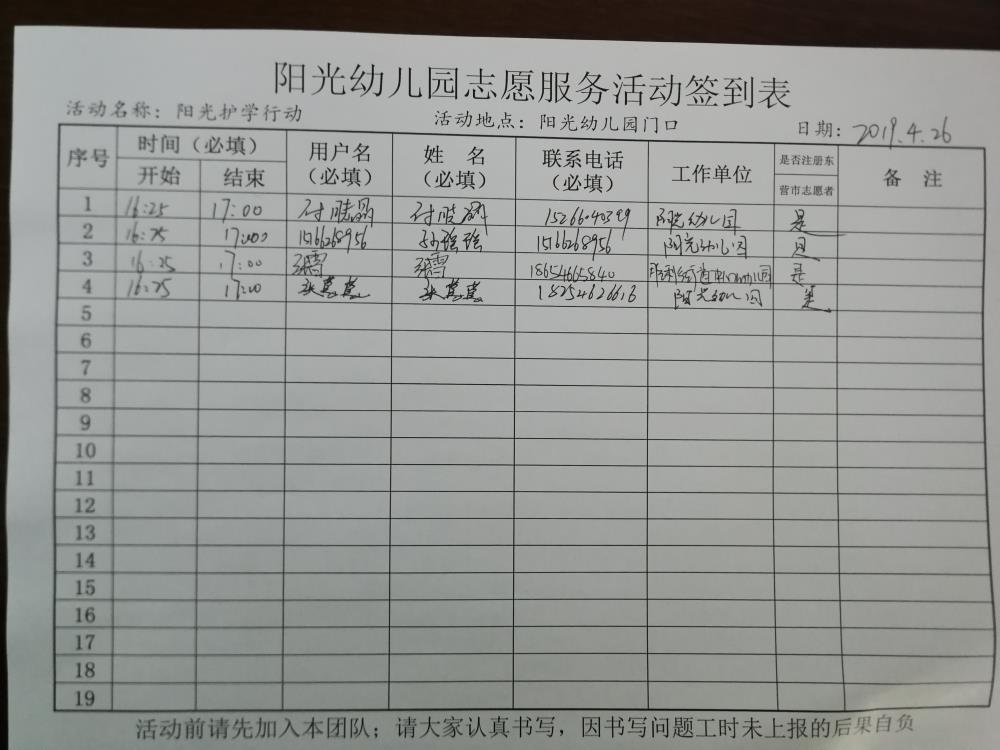 阳光幼儿园志愿服务活动签到表
活动名称：阳光护学行动 活动地点：阳光幼儿园门口 日期：2019.4.26
序号 时间（必填） 用户名（必填） 姓名（必填） 联系电话（必填） 工作单位 是否注册东营市志愿者 备注
开始 结束
1 16:25 17:00 付晓 付晓 15266040399 阳光幼儿园 是
2 16:25 17:00 15166268956 孙绘绘 15166268956 阳光幼儿园 是
3 16:25 17:00 张雪 张雪 18654665840 幼儿园 是
4 16:25 17:00 张 张 18254626616 阳光幼儿园 是
5
6
7
8
9
10
11
12
13
14
15
16
17
18
19
活动前请先加入本团队；请大家认真书写，因书写问题工时未上报的后果自负